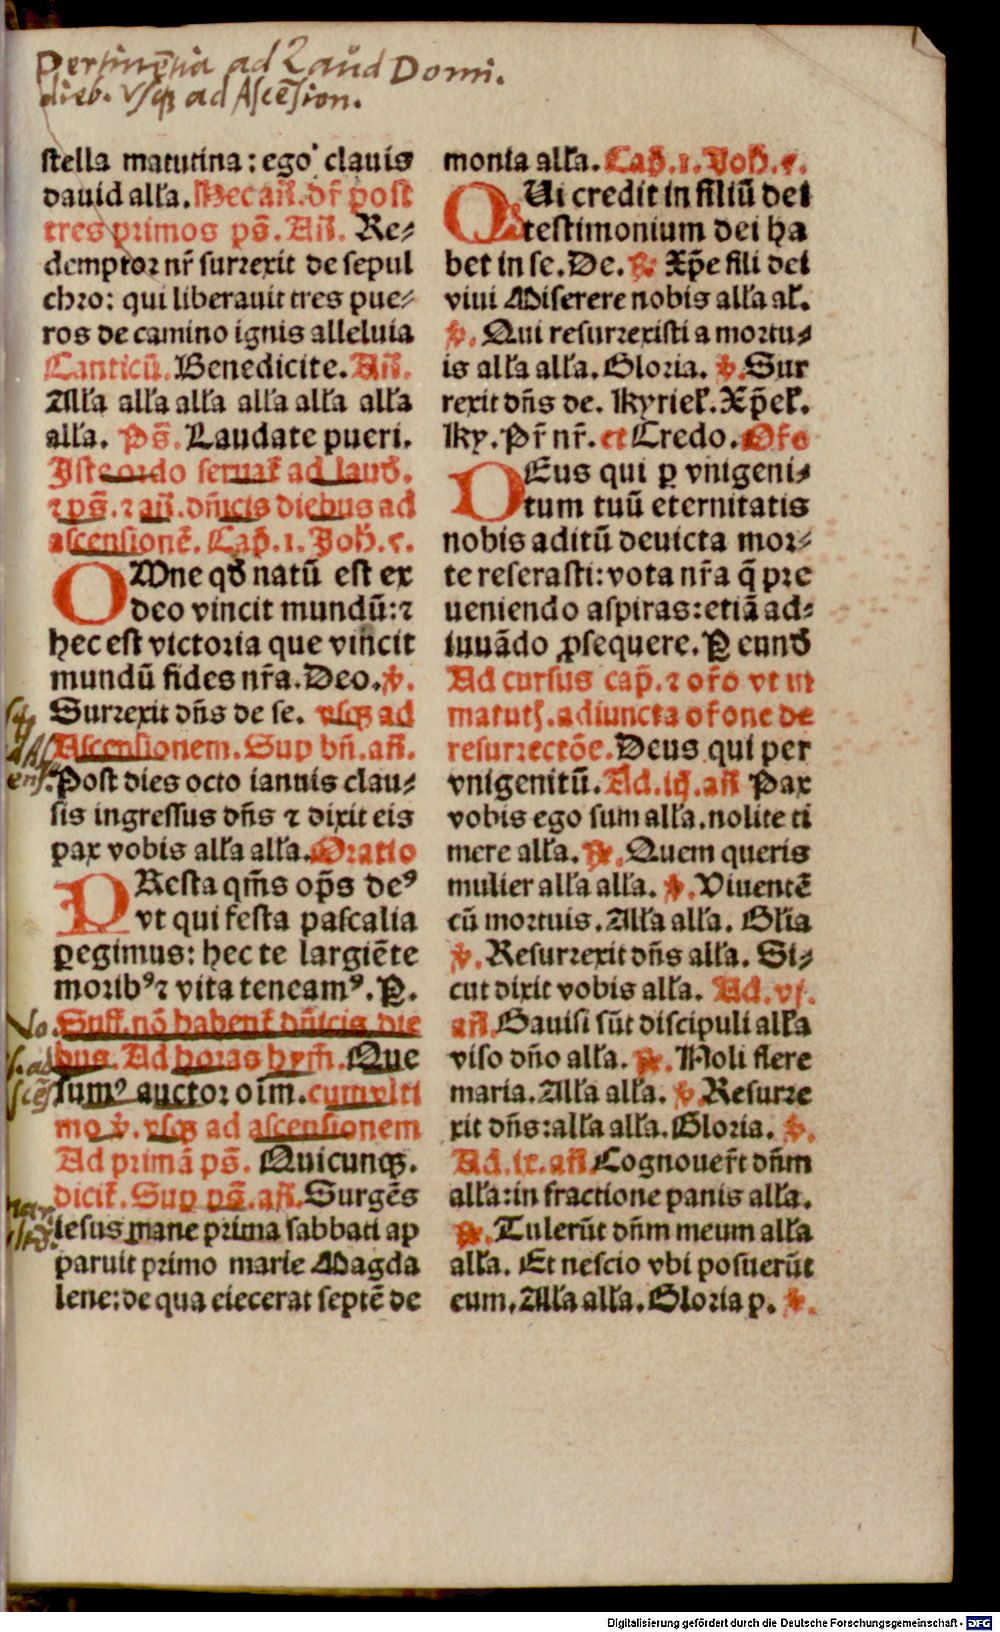 Pertinẽtia ad Laud Domi.
dieb. vsq; ad Ascẽsion.
stella matutina : ego clauis
dauid all'a. Hec añ. dr̃ post
tres primos ps̃. Añ. Re⸗
demptor nr̃ surrexit de sepul
chro: qui liberauit tres pue⸗
ros de camino ignis alleluia
Canticũ. Benedicite. Añ.
All'a all'a all'a all'a all'a all'a
all'a. Ps̃. Laudate pueri.
Iste ordo seruať ad laud'.
⁊ ps̃. ⁊ añ. dñicis diebus ad
ascensionẽ. Cap̃. 1. Joh̃. 5.
OMne qd' natũ est ex
deo vincit mundũ: ⁊
hec est victoria que vincit
mundũ fides nr̃a. Deo. ℣.
Surrexit dñs de se. vsq; ad
Ascensionem. Sup bñ. añ.
Post dies octo ianuis clau⸗
sis ingressus dñs ⁊ dixit eis
pax vobis all'a all'a. Oratio
PResta qm̃s op̃s deꝰ
vt qui festa pascalia
ꝑegimus: hec te largiẽte
moribꝰ ⁊ vita teneamꝰ. P.
Suff. nõ habent' dñicis die
bus. Ad horas hym̃. Que
sumꝰ auctor oim. cum vlti
mo ℣. vsq; ad ascensionem
Ad primã ps̃. Quicunq;.
dicit'. Sup ps̃. añ. Surgẽs
iesus mane prima sabbati ap
paruit primo marie Magda
lene: de qua eiecerat septẽ de
monia all'a. Cap̃. 1. Joh̃. 5.
QUi credit in filiũ dei
testimonium dei ha
bet in se. De. ℟. Xp̃e fili dei
viui Miserere nobis all'a al'.
℣. Qui resurrexisti a mortu⸗
is all'a all'a. Gloria. ℣. Sur
rexit dñs de. Kyriel'. Xp̃el'.
Ky. Pr̃ nr̃. et Credo. Or̃o
DEus qui ꝑ vnigeni⸗
tum tuũ eternitatis
nobis aditũ deuicta mor⸗
te reserasti: vota nr̃a q̃ pre
ueniendo aspiras: etiã ad⸗
iuuãdo ꝓsequere. P eund'
Ad cursus cap̃. ⁊ or̃o vt in
matut̃. adiuncta or̃one de
resurrectõe. Deus qui per
vnigenitũ. Ad. iij. añ Pax
vobis ego sum all'a. nolite ti
mere all'a. ℟. Quem queris
mulier all'a all'a. ℣. Viuentẽ
cũ mortuis. All'a all'a. Gl'ia
℣. Resurrexit dñs all'a. Si⸗
cut dixit vobis all'a. Ad. vj.
añ. Gauisi sũt discipuli all'a
viso dño all'a. ℟. Noli flere
maria. All'a all'a. ℣. Resurre
xit dñs: all'a all'a. Gloria. ℣.
Ad. ix. añ. Cognouer̃t dñm
all'a: in fractione panis all'a.
℟. Tulerũt dñm meum all'a
all'a. Et nescio vbi posuerũt
eum. All'a all'a. Gloria p. ℣.
Digitalisierung gefördert durch die Deutsche Forschungsgemeinschaft - DFG